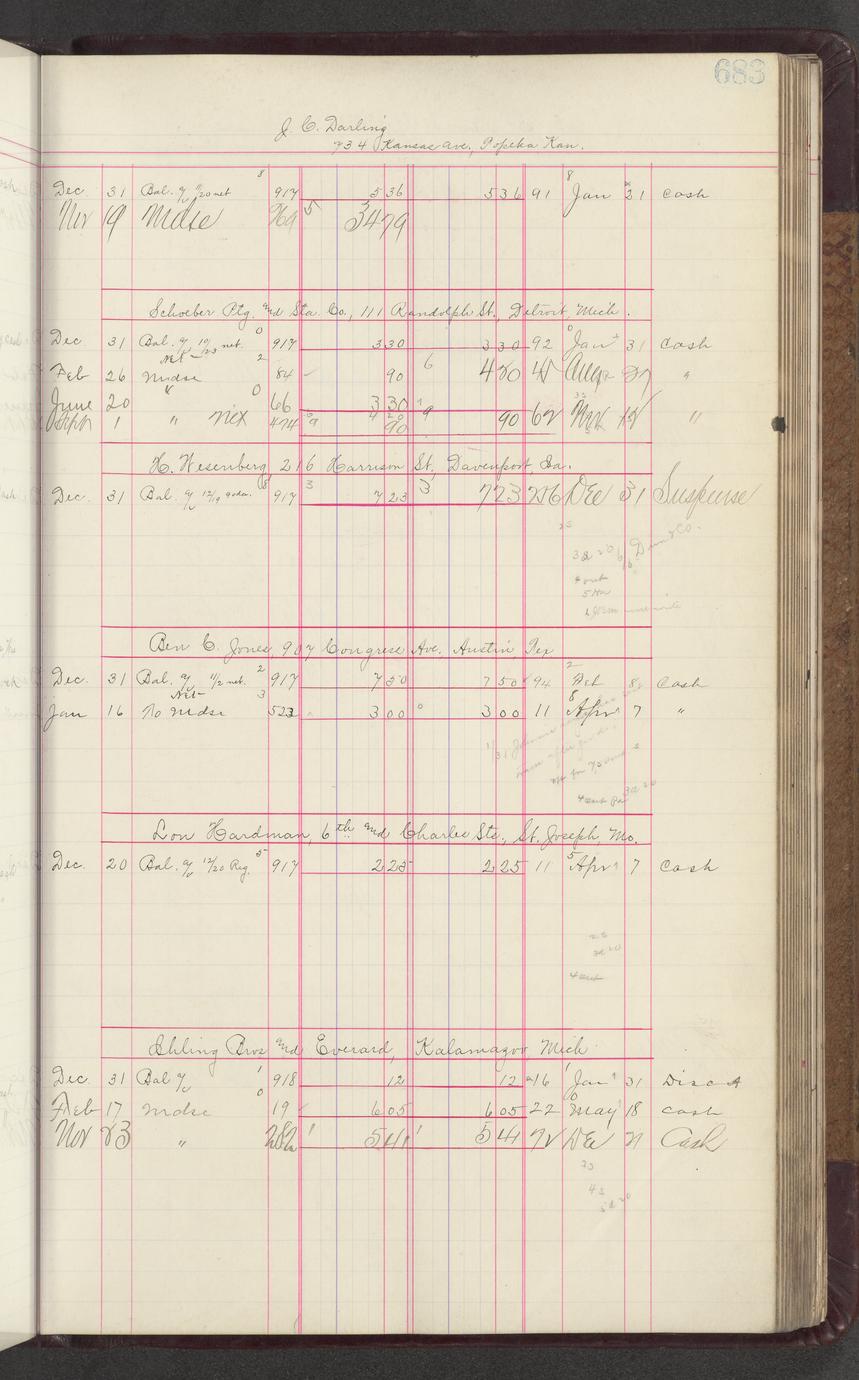 683
J. C. Darling
734 Kansas Ave., Topeka Kan.
8 8
Dec. 31 Bal. 1/20 net 917 5 36 5 36 91 Jan 21 Cash
Nov 19 Mdse 5 3479
Schober Ptg. and Sta. Co., 111 Randolph St., Detroit, Mich.
Dec. 31 Bal. 10/23 net. 0 917 3 30 3 30 92 Jan 31 Cash
Net 2
Feb 26 Mdse 84 90 6 4 20 Aug 27 "
June 20 " 0 66 3 30
Sept 1 " net 474 90 9 90 62 Nov 12 "
H. Wesenberg, 216 Harrison St., Davenport, Ia.
Dec. 31 Bal. 12/9 917 3 7 23 3 7 23 256 Dec 31 Suspense
Ben C. Jones, 907 Congress Ave., Austin Tex
Dec. 31 Bal. 11/2 net. 2 917 7 50 7 50 94 Feb 8 Cash
Net 3
Jan 16 To Mdse 523 3 00 3 00 11 Apr 7 "
Lon Hardman, 6th and Charles Sts., St. Joseph, Mo.
Dec. 20 Bal. 12/20 Reg. 5 917 2 25 2 25 11 Apr 7 Cash
Ihling Bros and Everard, Kalamazoo Mich
Dec. 31 Bal 1 918 12 12 16 Jan 31 Disct
Feb 17 Mdse 0 19 6 05 6 05 22 May 18 Cash
Nov 23 " 282 1 5 41 1 5 41 72 Dec 21 Cash